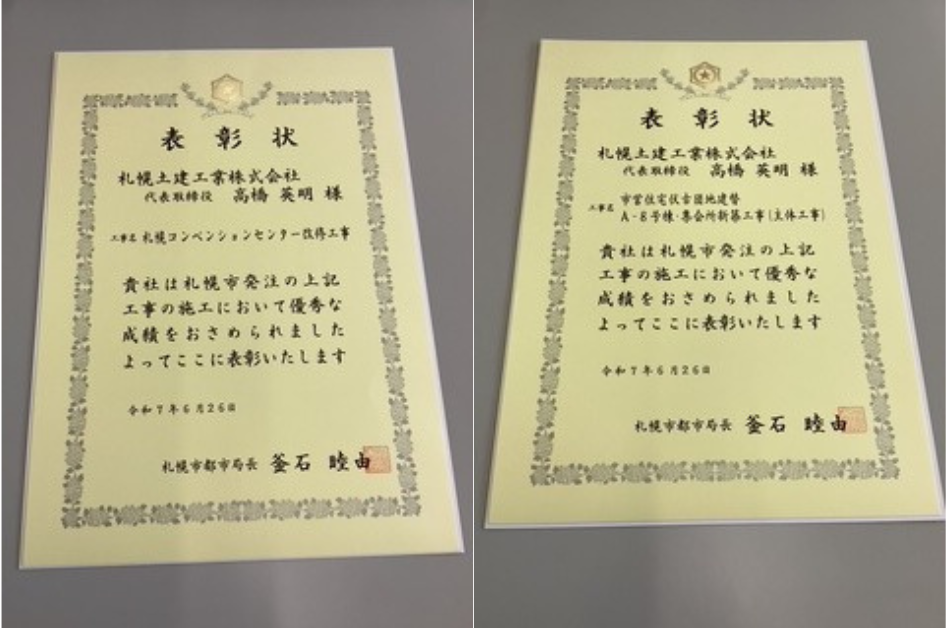 表彰状
札幌土建工業株式会社
代表取締役 高橋 英明 様
工事名 札幌コンベンションセンター改修工事
貴社は札幌市発注の上記
工事の施工において優秀な
成績をおさめられました
よってここに表彰いたします
令和7年6月26日
札幌市都市局長 釜石 睦由
表彰状
札幌土建工業株式会社
代表取締役 高橋 英明 様
工事名
市営住宅伏古団地建替
A-8号棟・集会所新築工事(主体工事)
貴社は札幌市発注の上記
工事の施工において優秀な
成績をおさめられました
よってここに表彰いたします
令和7年6月26日
札幌市都市局長 釜石 睦由